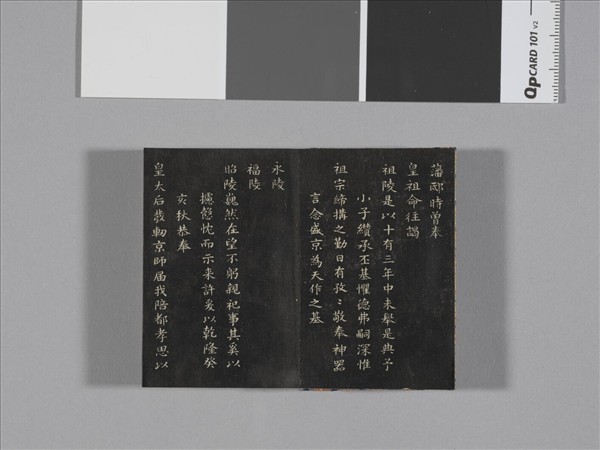 藩邸時曾奉
皇祖命往謁
祖陵是以十有三年中未舉是典予
小子纘承丕基懼德弗嗣深惟
祖宗締搆之勤日有孜〻敬奉神器
言念盛京為天作之基
永陵
福陵
昭陵巍然在望不躬親祀事其奚以
攄慤忱而示來許爰以乾隆癸
亥秋恭奉
皇太后發軔京師屆我陪都孝思以
QPCARD 101 v2